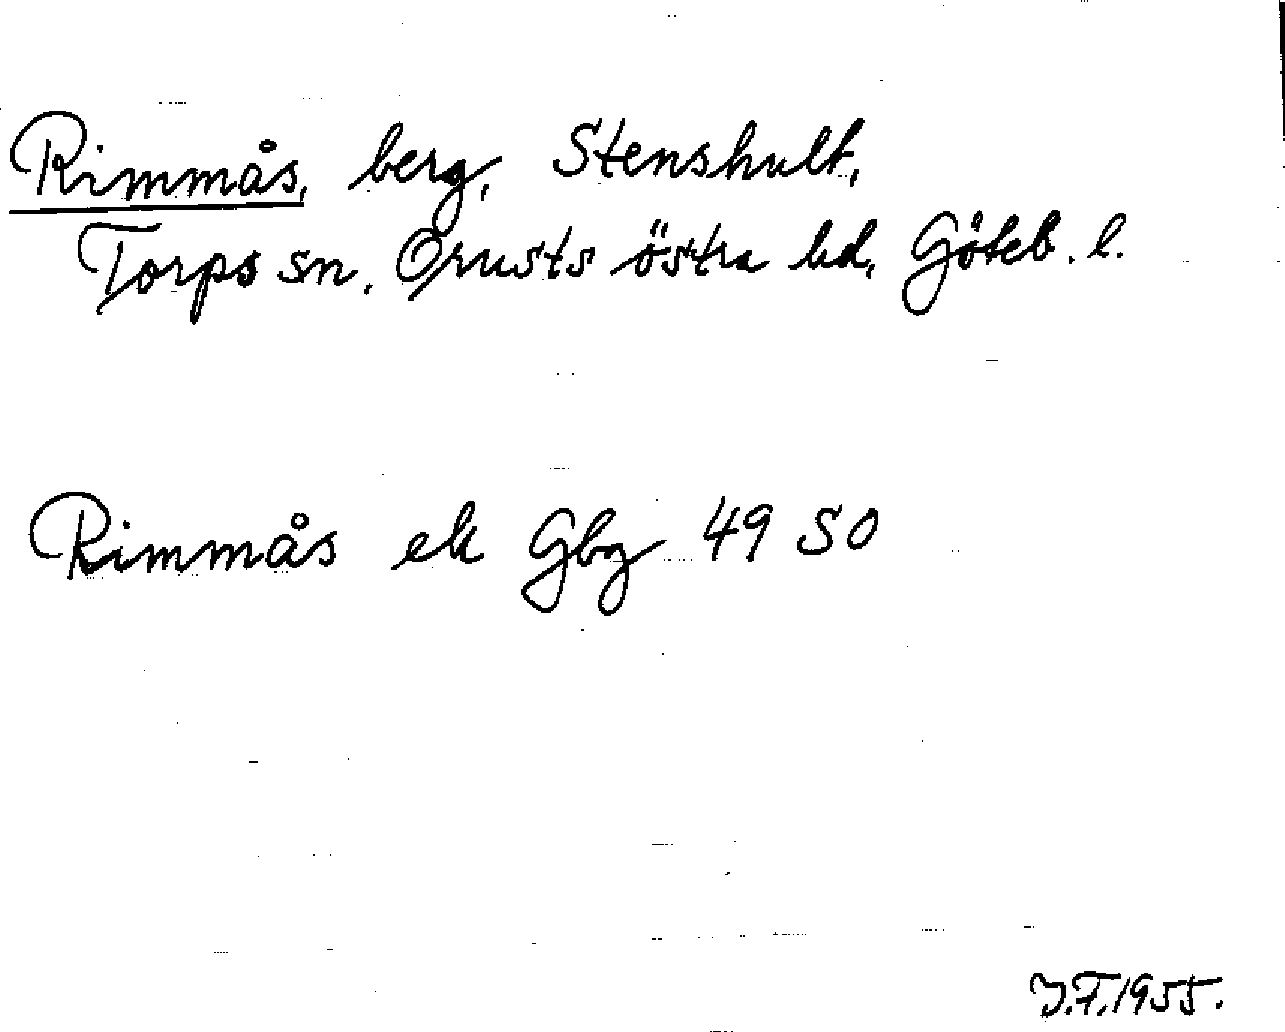 Rimmås, berg, Stenshult,
Torps sn, Orusts östra hd, Göteb. l.
Rimmås ek Gbg 49 SO
J.F. 1955.